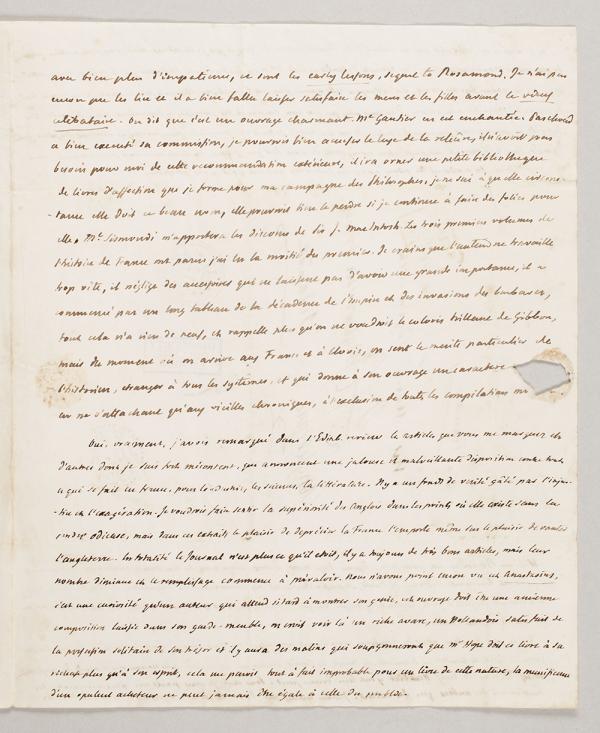 avec bien plus d'impatience, ce sont les early lessons, sequel to Rosamond. Je n'ai pas
encore pu les lire et il a bien fallu laisser satisfaire les meres et les filles avant le vieux
celibataire. On dit que c'est un ouvrage charmant. Me Gautier en est enchantée. Paschoud
a bien executé sa commission, je pourrois bien accuser le luxe de la relieure, il n'avoit pas
besoin pour moi de cette recommandation exterieure, il ira orner une petite bibliotheque
de livres d'affection que je forme pour ma campagne des Philosophes, je ne sai à quelle circons-
-tance elle doit ce beau nom, elle pourroit bien le perdre si je continue à faire des folies pour
elle. Mr. Sismondi m'apportera les discours de Sir J. Mac Intosh. Les trois premiers volumes de
l'histoire de France ont parus j'ai lu la moitié du premier. Je crains que l'auteur ne travaille
trop vite, il néglige des accessoires qui ne laissent pas d'avoir une grande importance, il a
commencé par un long tableau de la décadence de l'Empire et des invasions des barbares,
tout cela n'a rien de neuf, et rappelle plus qu'on ne voudroit le coloris brillant de Gibbon,
mais du moment où on arrive aux Francs et à Clovis, on sent le mérite particulier de
l'historien, etranger à tous les systemes, et qui donne à son ouvrage un caractere
en ne s'attachant qu'aux vieilles chroniques, à l'exclusion de toutes les compilations
Oui, vraiment, j'avois remarqué dans l'Edinb. review les articles que vous me marquez et
d'autres dont je suis fort mécontent, qui annoncent une jalouse et malveillante disposition contre tout
ce qui se fait en france, pour l'industrie, les sciences, la littérature. Il y a un fonds de vérité gâté par l'injus-
-tice et l'exagération. Je voudrois faire sentir la supériorité des Anglois dans les points où elle existe sans la
rendre odieuse, mais dans ces extraits, le plaisir de déprécier la France l'emporte même sur le plaisir de vanter
l'angleterre. En totalité le Journal n'est plus ce qu'il etoit, il y a toujours de très bons articles, mais leur
nombre diminue et le remplissage commence à prévaloir. Nous n'avons point encore vu cet Anastasius,
c'est une curiosité qu'un auteur qui attend si tard à montrer son genie, cet ouvrage doit être une ancienne
composition laissée dans son garde-meuble, on croit voir là un riche avare, un Hollandois satisfait de
la possession solitaire de son trésor et il y aura des malins qui soupçonneront que Mr Hope doit ce livre à sa
richesse plus qu'à son esprit, cela me paroit tout à fait improbable pour un livre de cette nature, la munificence
d'un opulent acheteur ne peut jamais être égale à celle du public.